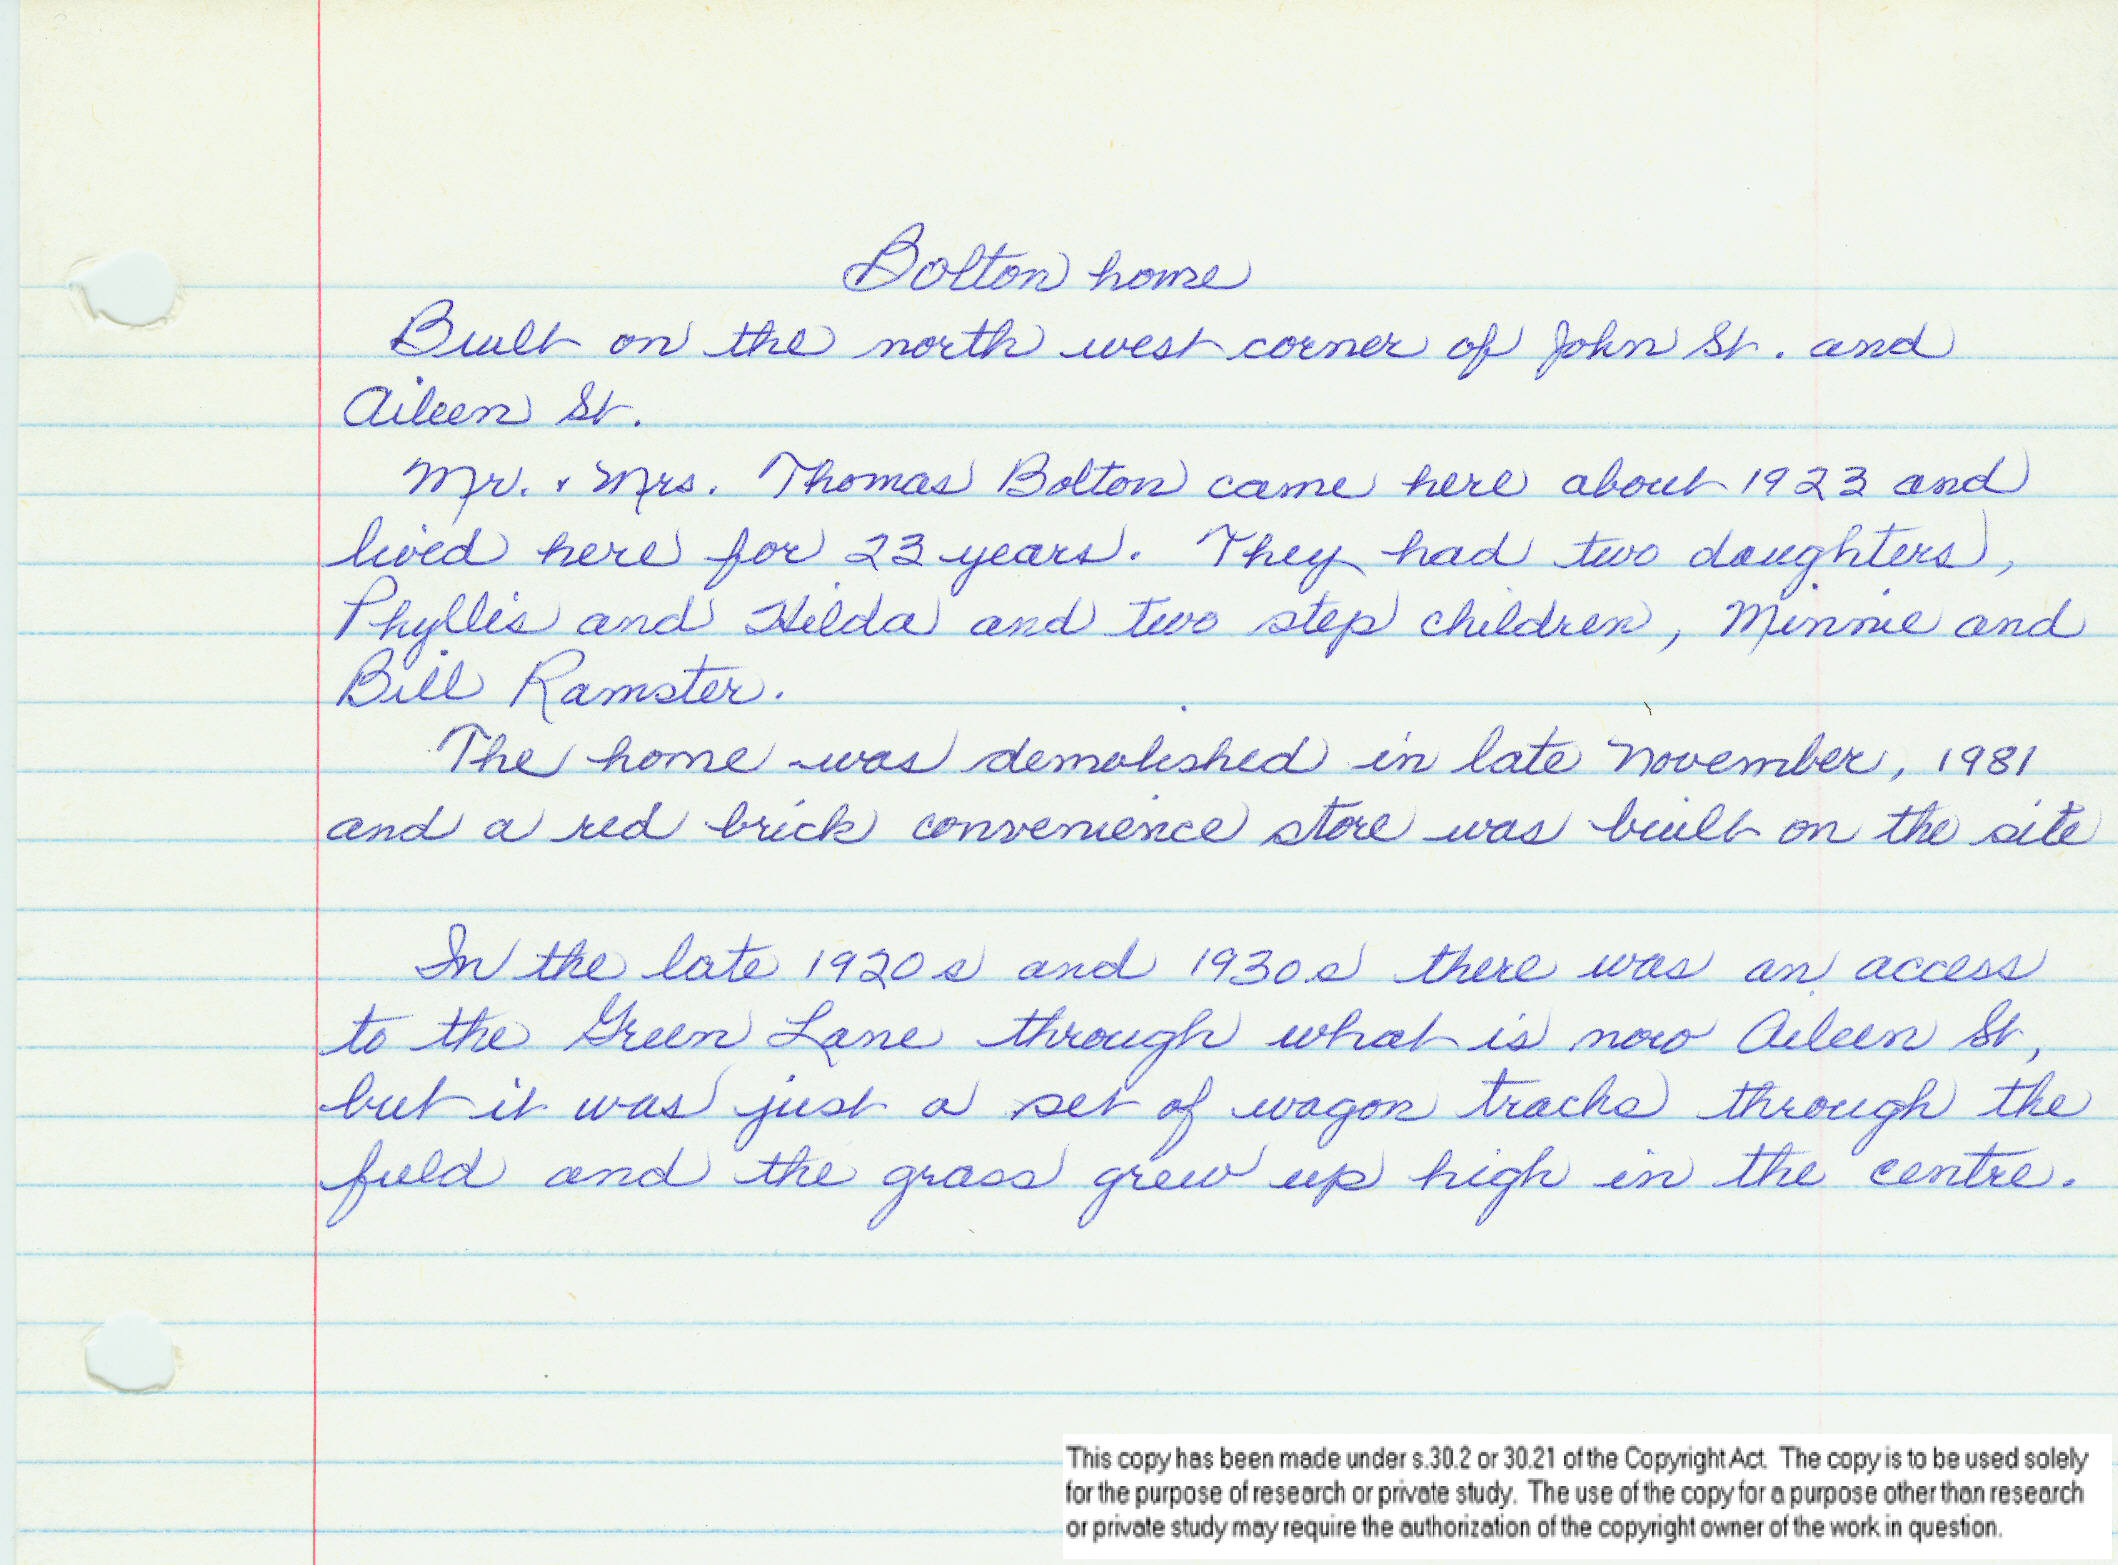 Bolton home
Built on the north west corner of John St. and
Aileen St.
Mr. & Mrs. Thomas Bolton came here about 1923 and
lived here for 23 years. They had two daughters,
Phyllis and Hilda and two step children, Minnie and
Bill Ramster.
The home was demolished in late November, 1981
and a red brick convenience store was built on the site
In the late 1920s and 1930s there was an access
to the Green Lane through what is now Aileen St,
but it was just a set of wagon tracks through the
field and the grass grew up high in the centre.
This copy has been made under s.30.2 or 30.21 of the Copyright Act. The copy is to be used solely
for the purpose of research or private study. The use of the copy for a purpose other than research
or private study may require the authorization of the copyright owner of the work in question.